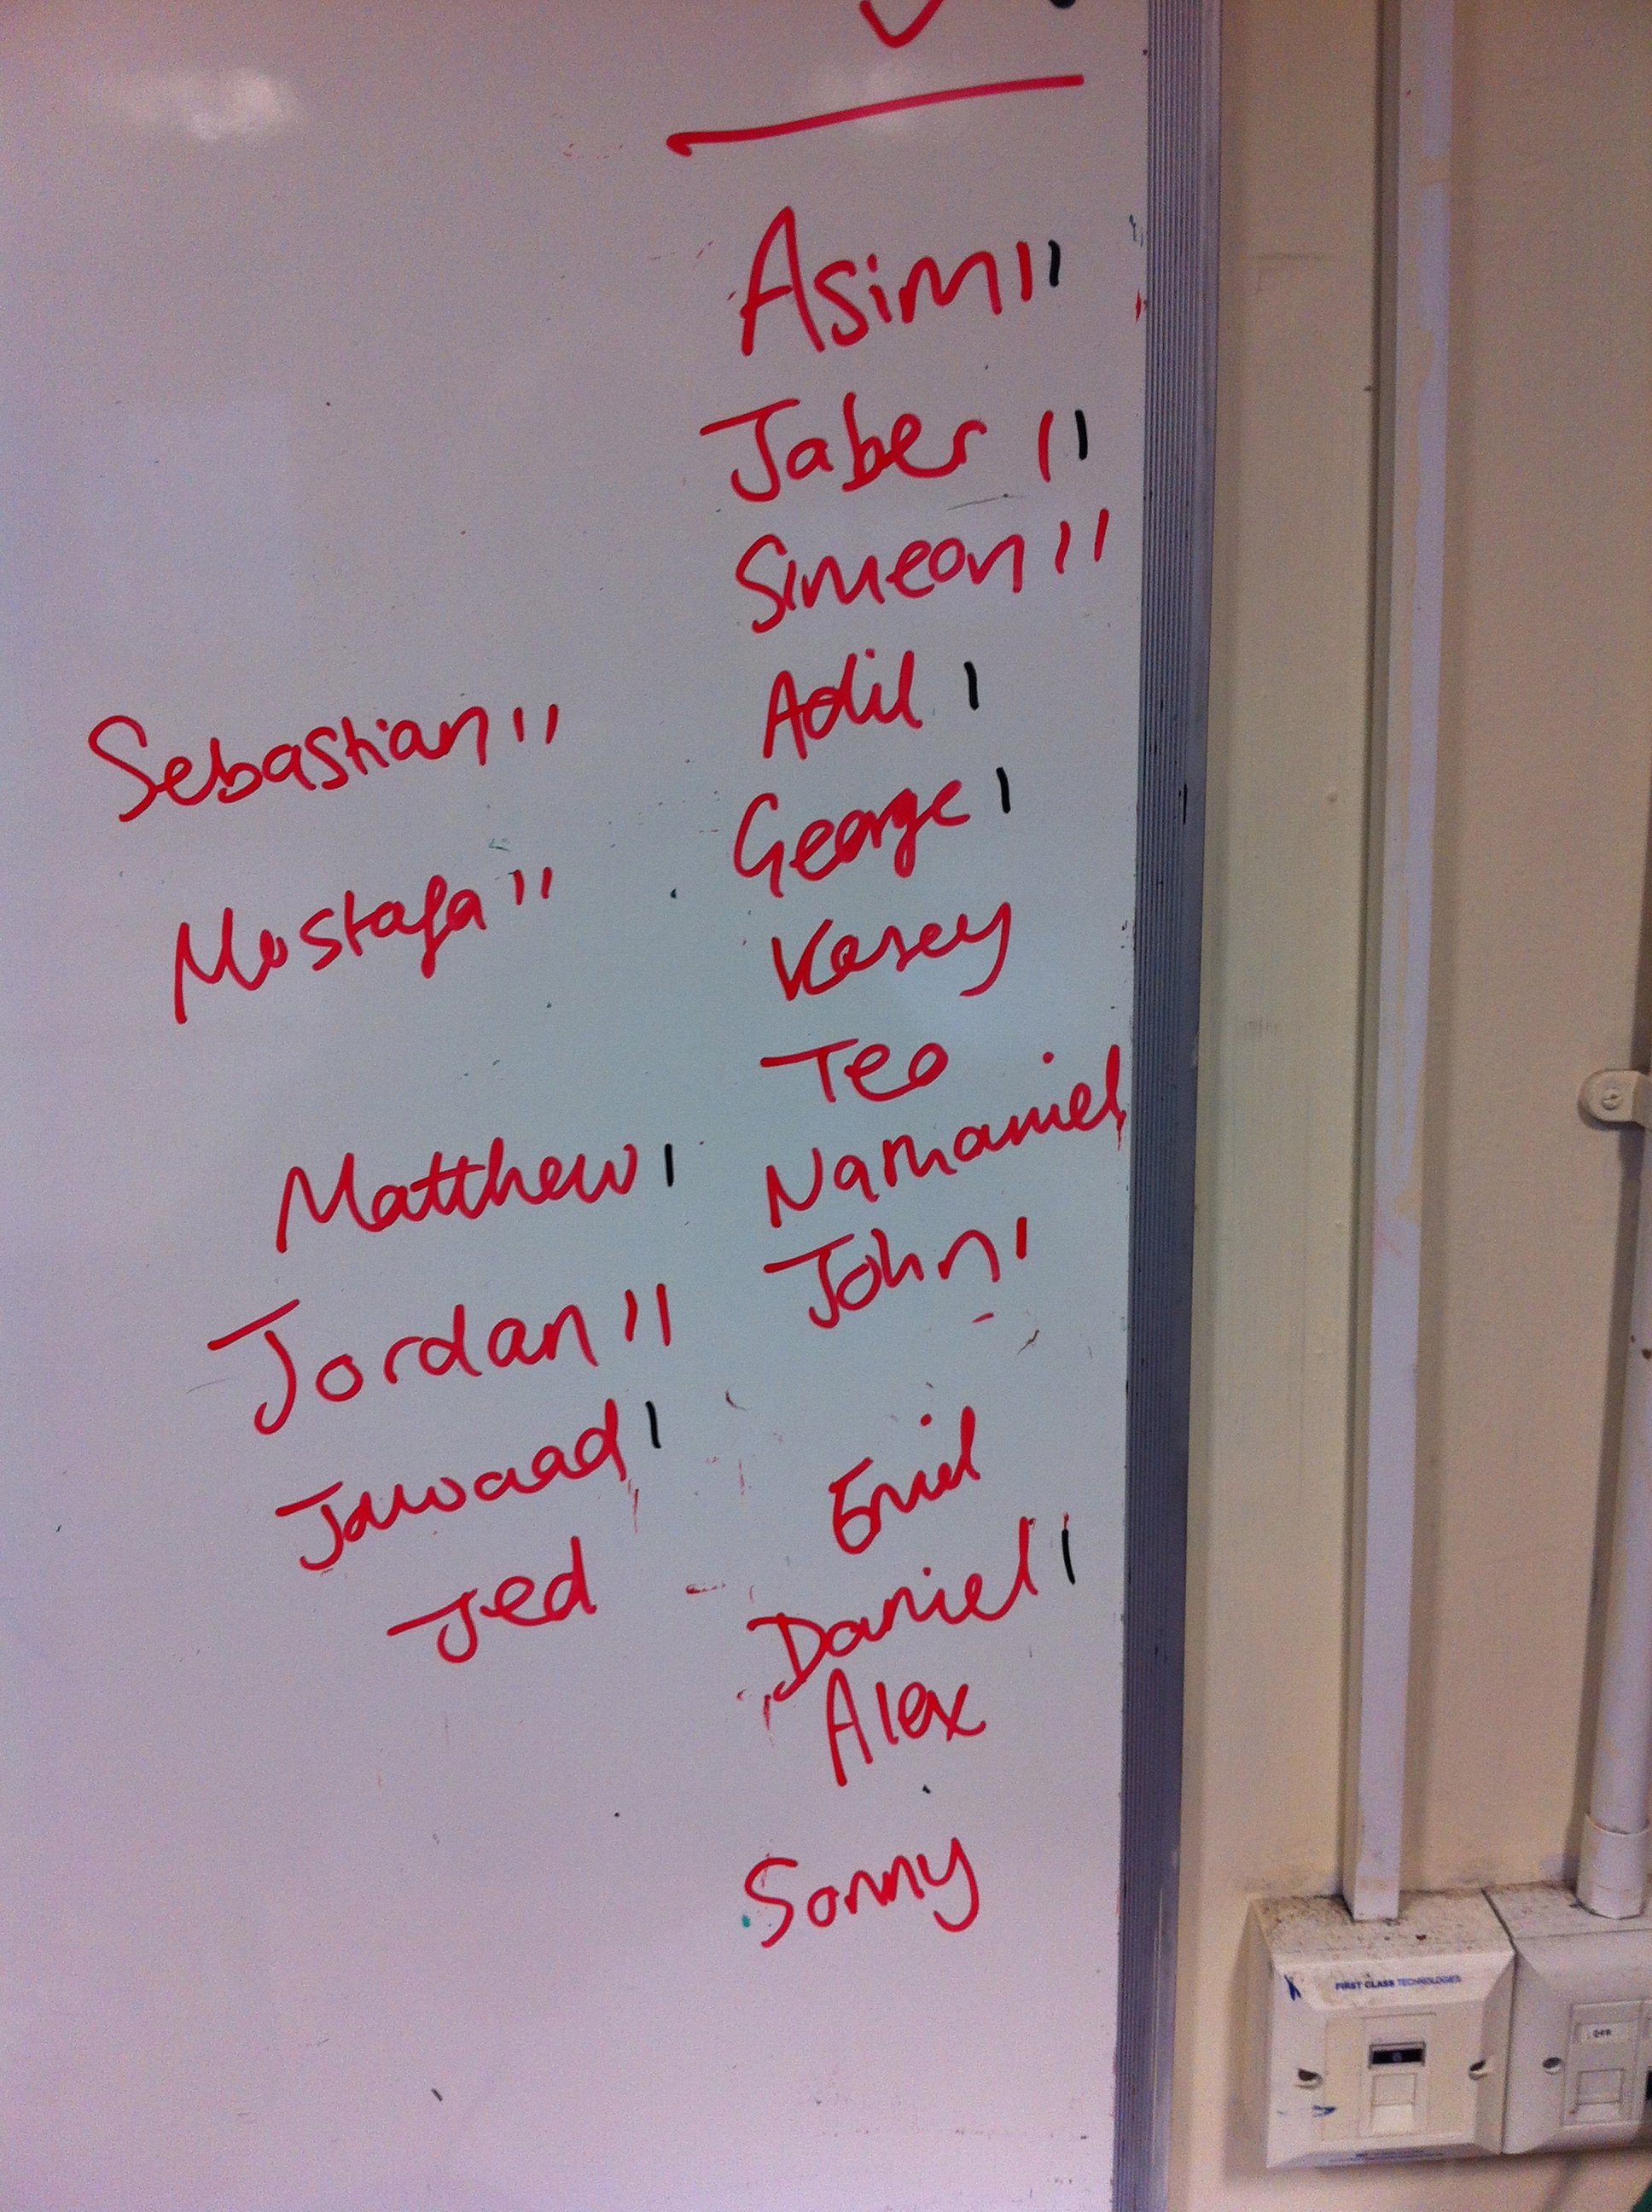 Asim II
Jaber II
Simeon II
Adil I
George I
Kasey
Teo
Nathaniel
John I
Daniel I
Alex
Sonny
Sebastian II
Mostafa II
Matthew I
Jordan II
Jawaad I
Jed
FIRST CLASS TECHNOLOGIES